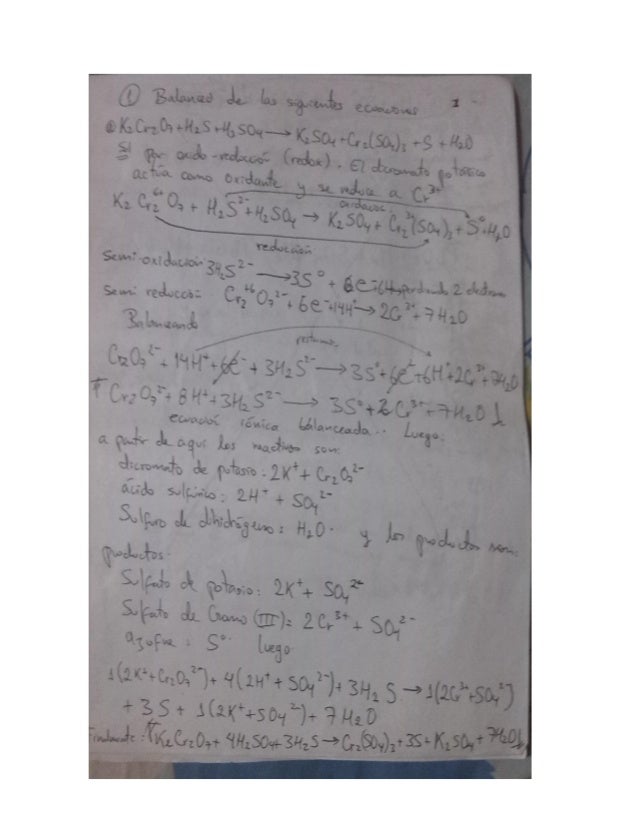 ① Balanceo de las siguientes ecuaciones 1
a K₂Cr₂O₇ + H₂S + H₂SO₄ → K₂SO₄ + Cr₂(SO₄)₃ + S + H₂O
Sl Por oxido-reducción (redox). El dicromato potásico
actúa como oxidante y se reduce a Cr³⁺
oxidación
K₂Cr₂⁶⁺O₇ + H₂S²⁻ + H₂SO₄ → K₂SO₄ + Cr₂³⁺(SO₄)₃ + S⁰ + H₂O
reducción
Semi-oxidación 3H₂S²⁻ → 3S⁰ + 6e⁻ perdiendo 2 electrones
Semi reducción- Cr₂⁺⁶O₇²⁻ + 6e⁻ + 14H⁺ → 2Cr³⁺ + 7H₂O
Balanceando
restamos
Cr₂O₇²⁻ + 14H⁺ + 6e⁻ + 3H₂S²⁻ → 3S⁰ + 6e⁻ + 6H⁺ + 2Cr³⁺ + 7H₂O
Cr₂O₇²⁻ + 8H⁺ + 3H₂S²⁻ → 3S⁰ + 2Cr³⁺ + 7H₂O
ecuación iónica balanceada.. Luego:
a partir de aquí los reactivos son:
dicromato de potasio: 2K⁺ + Cr₂O₇²⁻
ácido sulfúrico: 2H⁺ + SO₄²⁻
Sulfuro de dihidrógeno: H₂O. y los productos son:
productos.
Sulfato de potasio: 2K⁺ + SO₄²⁻
Sulfato de Cromo (III)= 2Cr³⁺ + SO₄²⁻
azofre: S⁰. luego
1(2K⁺+Cr₂O₇²⁻) + 4(2H⁺ + SO₄²⁻) + 3H₂S → 1(2Cr³⁺+SO₄²⁻)
+ 3S + 1(2K⁺+SO₄²⁻) + 7H₂O
Finalmente: K₂Cr₂O₇ + 4H₂SO₄ + 3H₂S → Cr₂(SO₄)₃ + 3S + K₂SO₄ + 7H₂O